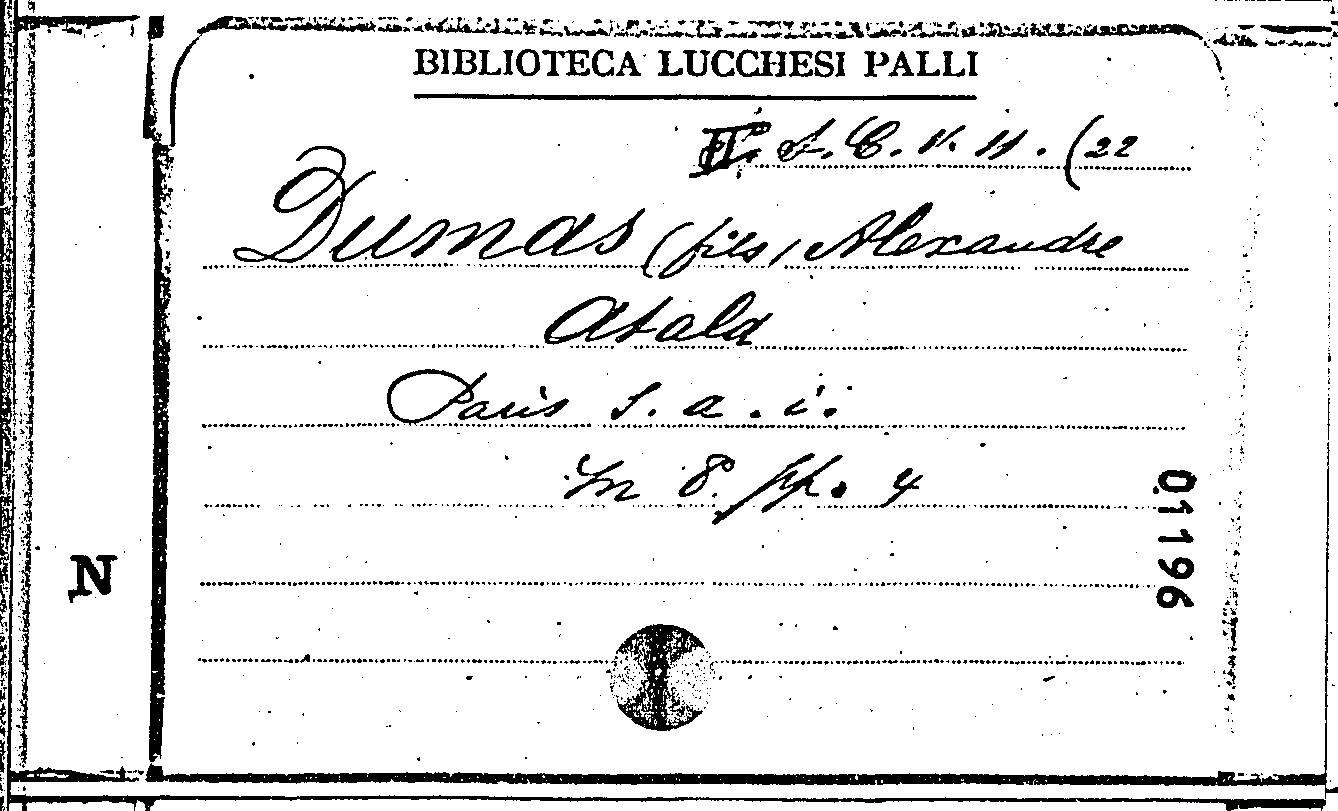 BIBLIOTECA LUCCHESI PALLI
II. S. C. V. 11. (22
Dumas (fils) Alexandre
Atala
Paris s. a. i.
In 8. pp. 4
01196
N